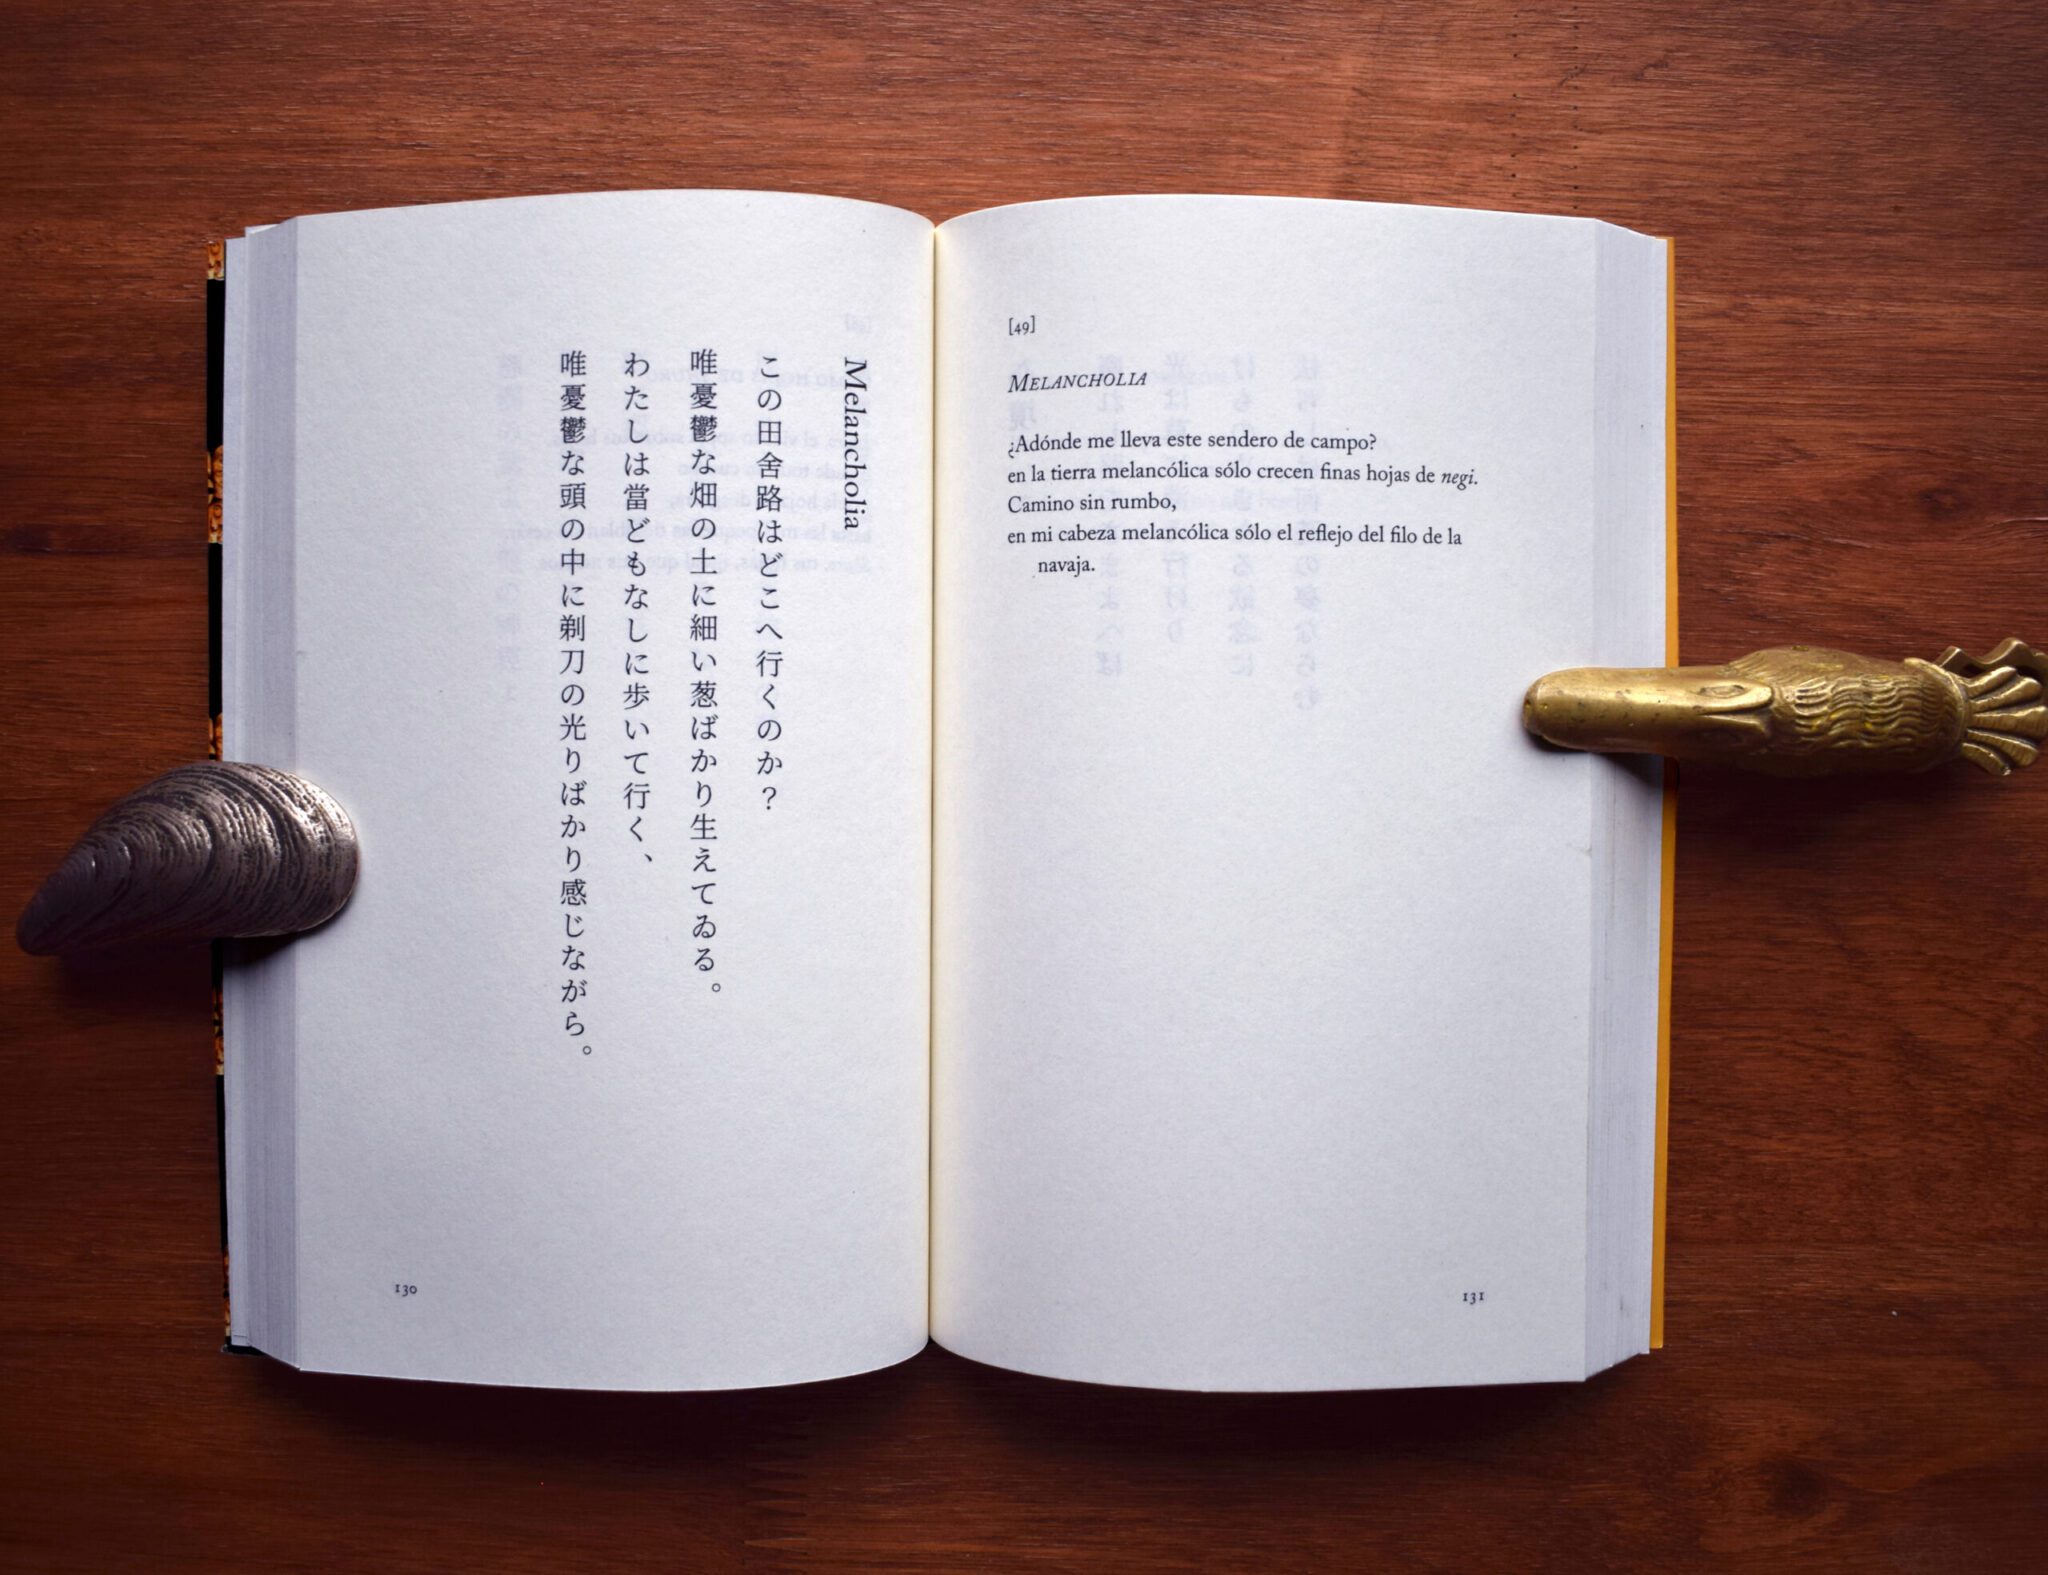 Melancholia
この田舎路はどこへ行くのか？
唯憂鬱な畑の土に細い葱ばかり生えてゐる。
わたしは當どもなしに歩いて行く、
唯憂鬱な頭の中に剃刀の光りばかり感じながら。
130
[49]
MELANCHOLIA
¿Adónde me lleva este sendero de campo?
en la tierra melancólica sólo crecen finas hojas de negi.
Camino sin rumbo,
en mi cabeza melancólica sólo el reflejo del filo de la
navaja.
131